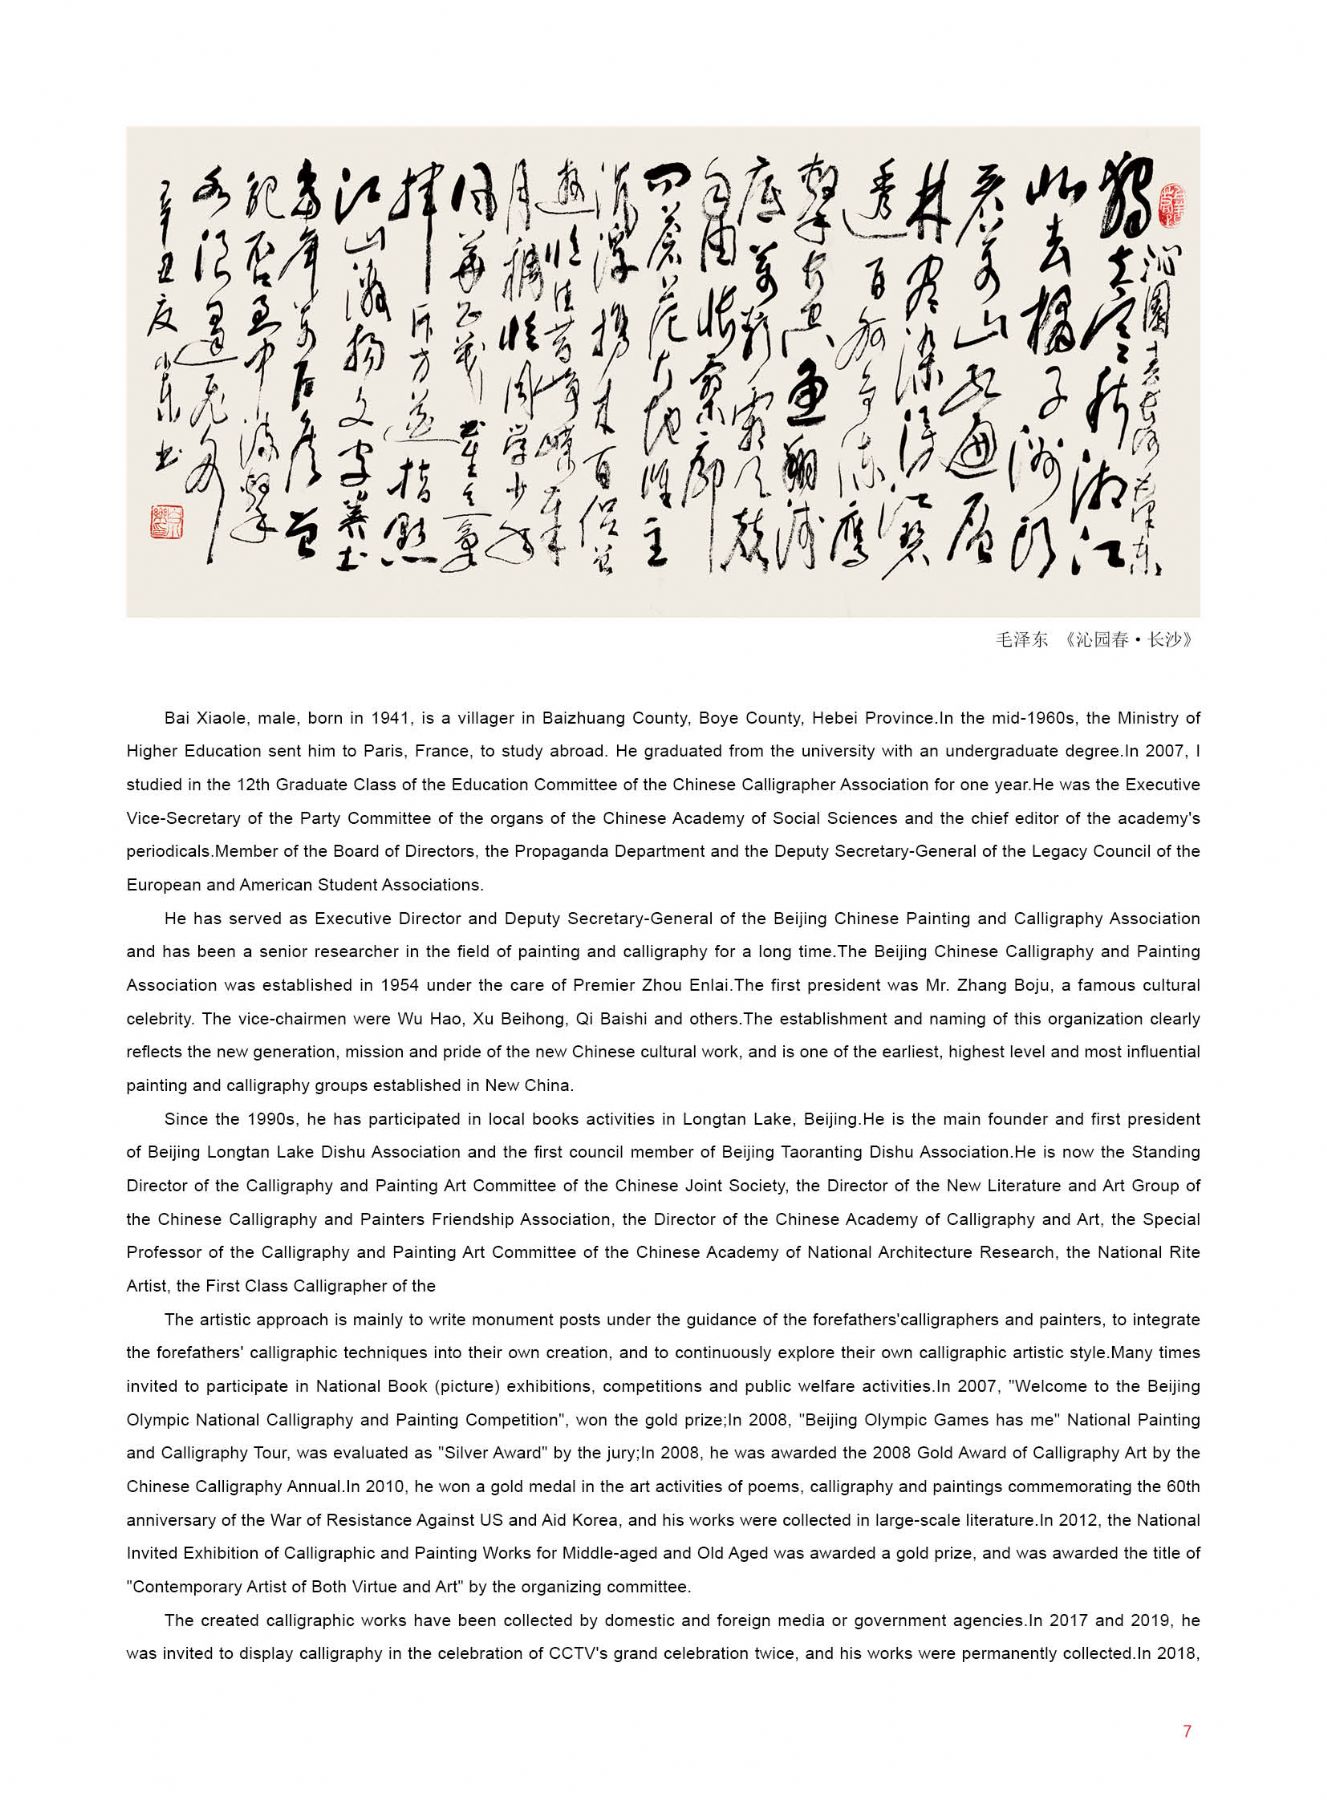 沁園春長沙 毛澤東
獨立寒秋湘江
北去橘子洲頭
看萬山紅遍層
林盡染漫江碧
透百舸爭流鷹
擊長空魚翔淺
底萬類霜天競
自由悵寥廓
問蒼茫大地誰主
沉浮携來百侣曾
遊憶往昔崢嶸歲
月稠恰同學少年
風華正茂書生意氣
揮斥方遒指點
江山激揚文字糞土
當年萬户侯曾
記否到中流擊
水浪遏飛舟
辛丑夏小乐书
毛泽东 《沁园春·长沙》
Bai Xiaole, male, born in 1941, is a villager in Baizhuang County, Boye County, Hebei Province.In the mid-1960s, the Ministry of
Higher Education sent him to Paris, France, to study abroad. He graduated from the university with an undergraduate degree.In 2007, I
studied in the 12th Graduate Class of the Education Committee of the Chinese Calligrapher Association for one year.He was the Executive
Vice-Secretary of the Party Committee of the organs of the Chinese Academy of Social Sciences and the chief editor of the academy's
periodicals.Member of the Board of Directors, the Propaganda Department and the Deputy Secretary-General of the Legacy Council of the
European and American Student Associations.
He has served as Executive Director and Deputy Secretary-General of the Beijing Chinese Painting and Calligraphy Association
and has been a senior researcher in the field of painting and calligraphy for a long time.The Beijing Chinese Calligraphy and Painting
Association was established in 1954 under the care of Premier Zhou Enlai.The first president was Mr. Zhang Boju, a famous cultural
celebrity. The vice-chairmen were Wu Hao, Xu Beihong, Qi Baishi and others.The establishment and naming of this organization clearly
reflects the new generation, mission and pride of the new Chinese cultural work, and is one of the earliest, highest level and most influential
painting and calligraphy groups established in New China.
Since the 1990s, he has participated in local books activities in Longtan Lake, Beijing.He is the main founder and first president
of Beijing Longtan Lake Dishu Association and the first council member of Beijing Taoranting Dishu Association.He is now the Standing
Director of the Calligraphy and Painting Art Committee of the Chinese Joint Society, the Director of the New Literature and Art Group of
the Chinese Calligraphy and Painters Friendship Association, the Director of the Chinese Academy of Calligraphy and Art, the Special
Professor of the Calligraphy and Painting Art Committee of the Chinese Academy of National Architecture Research, the National Rite
Artist, the First Class Calligrapher of the
The artistic approach is mainly to write monument posts under the guidance of the forefathers'calligraphers and painters, to integrate
the forefathers' calligraphic techniques into their own creation, and to continuously explore their own calligraphic artistic style.Many times
invited to participate in National Book (picture) exhibitions, competitions and public welfare activities.In 2007, "Welcome to the Beijing
Olympic National Calligraphy and Painting Competition", won the gold prize;In 2008, "Beijing Olympic Games has me" National Painting
and Calligraphy Tour, was evaluated as "Silver Award" by the jury;In 2008, he was awarded the 2008 Gold Award of Calligraphy Art by the
Chinese Calligraphy Annual.In 2010, he won a gold medal in the art activities of poems, calligraphy and paintings commemorating the 60th
anniversary of the War of Resistance Against US and Aid Korea, and his works were collected in large-scale literature.In 2012, the National
Invited Exhibition of Calligraphic and Painting Works for Middle-aged and Old Aged was awarded a gold prize, and was awarded the title of
"Contemporary Artist of Both Virtue and Art" by the organizing committee.
The created calligraphic works have been collected by domestic and foreign media or government agencies.In 2017 and 2019, he
was invited to display calligraphy in the celebration of CCTV's grand celebration twice, and his works were permanently collected.In 2018,
7